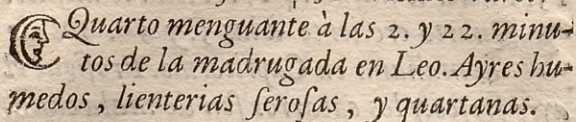 Quarto menguante à las 2. y 22. minu-
tos de la madrugada en Leo. Ayres hu-
medos, lienterias ſeroſas, y quartanas.